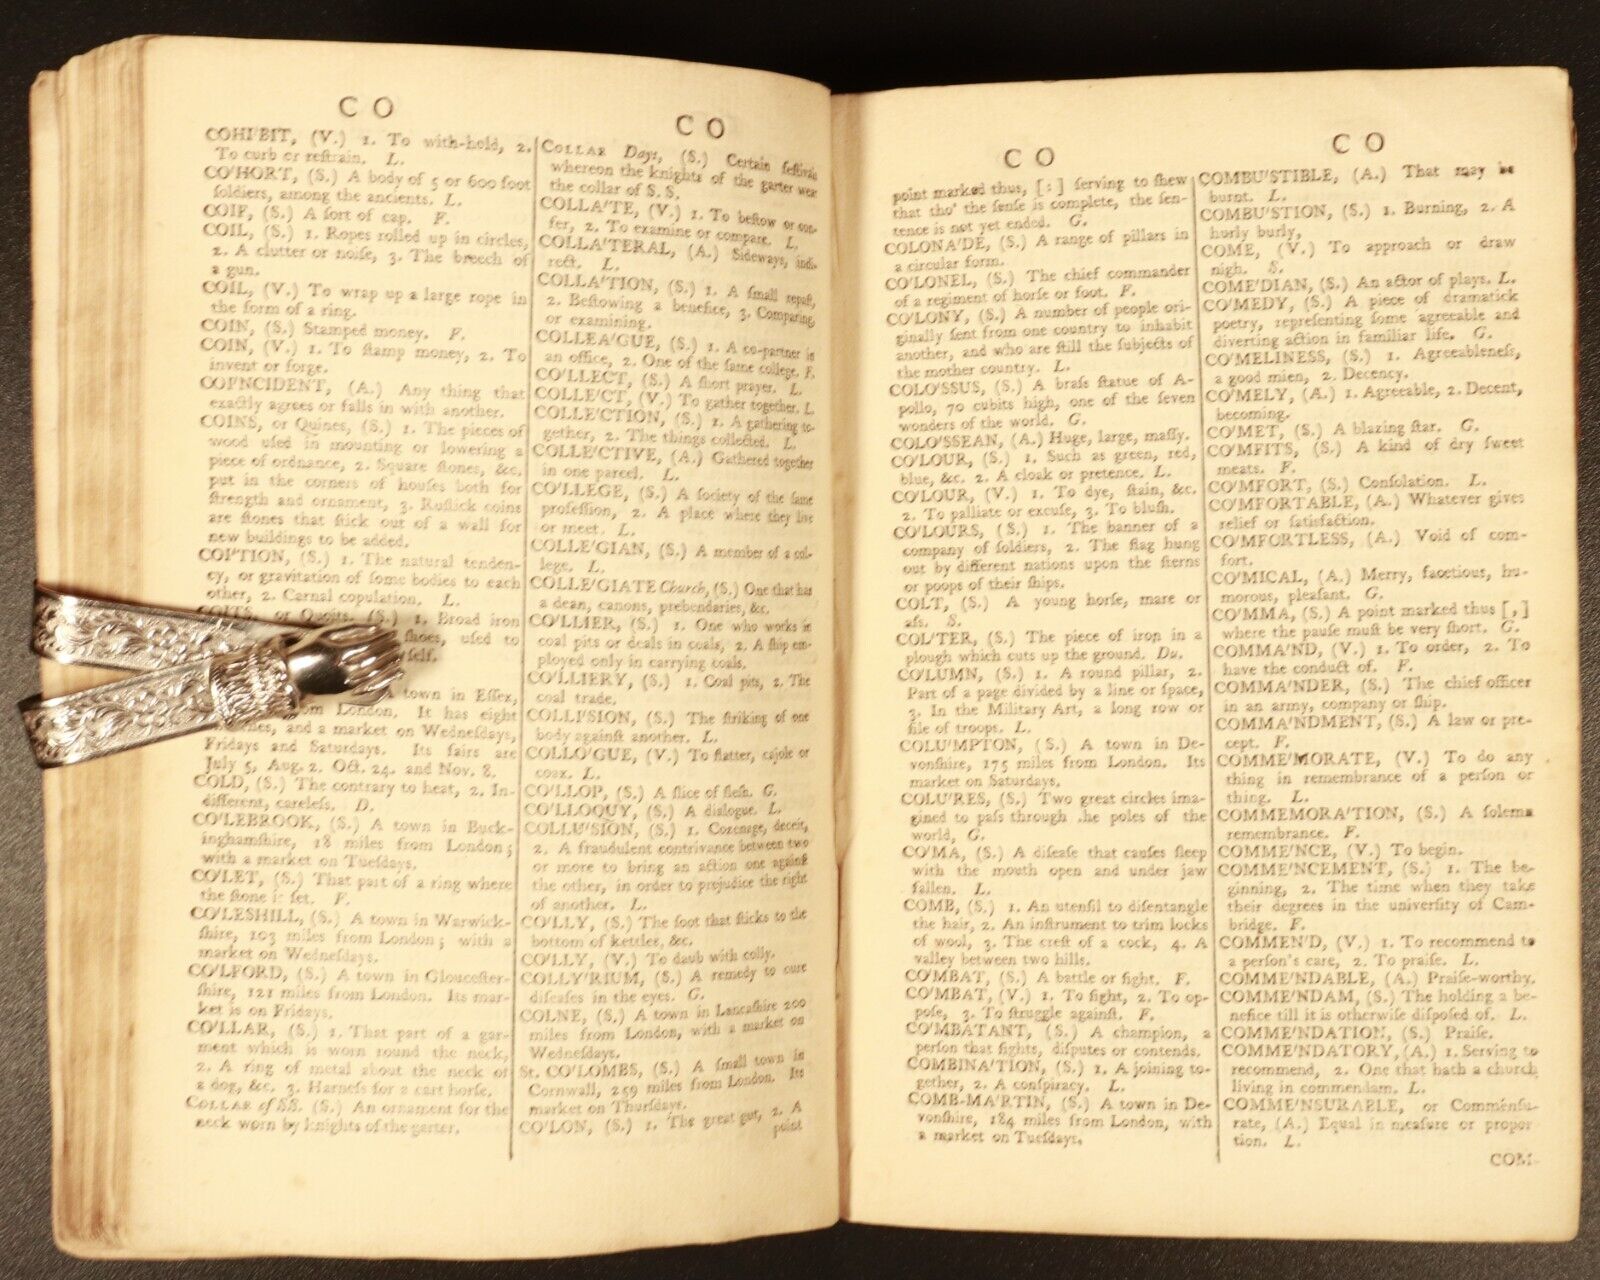 C O
COHI'BIT, (V.) 1. To with-hold, 2.
To curb or reſtrain. L.
CO'HORT, (S.) A body of 5 or 600 foot
ſoldiers, among the ancients. L.
COIF, (S.) A ſort of cap. F.
COIL, (S.) 1. Ropes rolled up in circles,
2. A clutter or noiſe, 3. The breech of
a gun.
COIL, (V.) To wrap up a large rope in
the form of a ring.
COIN, (S.) Stamped money. F.
COIN, (V.) 1. To ſtamp money, 2. To
invent or forge.
COI'NCIDENT, (A.) Any thing that
exactly agrees or falls in with another.
COINS, or Quines, (S.) 1. The pieces of
wood uſed in mounting or lowering a
piece of ordnance, 2. Square ſtones, &c.
put in the corners of houſes both for
ſtrength and ornament, 3. Ruſtick coins
are ſtones that ſtick out of a wall for
new buildings to be added.
COI'TION, (S.) 1. The natural tenden-
cy, or gravitation of ſome bodies to each
other, 2. Carnal copulation. L.
COITS, or Quoits, (S.) 1. Broad iron
ſhoes, uſed to
A town in Eſſex,
from London. It has eight
and a market on Wedneſdays,
Fridays and Saturdays. Its fairs are
July 5, Aug. 2. Oct. 24. and Nov. 8.
COLD, (S.) The contrary to heat, 2. In-
different, careleſs. D.
CO'LEBROOK, (S.) A town in Buck-
inghamſhire, 18 miles from London;
with a market on Tueſdays.
CO'LET, (S.) That part of a ring where
the ſtone is ſet. F.
CO'LESHILL, (S.) A town in Warwick-
ſhire, 103 miles from London; with a
market on Wedneſdays.
CO'LFORD, (S.) A town in Glouceſter-
ſhire, 121 miles from London. Its mar-
ket is on Fridays.
CO'LLAR, (S.) 1. That part of a gar-
ment which is worn round the neck,
2. A ring of metal about the neck of
a dog, &c. 3. Harneſs for a cart horſe.
COLLAR of SS. (S.) An ornament for the
neck worn by knights of the garter.
C O
COLLAR Days, (S.) Certain feſtivals
whereon the knights of the garter wear
the collar of S.S.
COLLA'TE, (V.) 1. To beſtow or con-
fer, 2. To examine or compare. L.
COLLA'TERAL, (A.) Sideways, indi-
rect. L.
COLLA'TION, (S.) 1. A ſmall repaſt,
2. Beſtowing a benefice, 3. Comparing,
or examining.
COLLEA'GUE, (S.) 1. A co-partner in
an office, 2. One of the ſame college. F.
CO'LLECT, (S.) A ſhort prayer. L.
COLLE'CT, (V.) To gather together. L.
COLLE'CTION, (S.) 1. A gathering to-
gether, 2. The things collected. L.
COLLE'CTIVE, (A.) Gathered together
in one parcel. L.
CO'LLEGE, (S.) A ſociety of the ſame
profeſſion, 2. A place where they live
or meet. L.
COLLE'GIAN, (S.) A member of a col-
lege. L.
COLLE'GIATE Church, (S.) One that has
a dean, canons, prebendaries, &c.
CO'LLIER, (S.) 1. One who works in
coal pits or deals in coals, 2. A ſhip em-
ployed only in carrying coals.
CO'LLIERY, (S.) 1. Coal pits, 2. The
coal trade.
COLLI'SION, (S.) The ſtriking of one
body againſt another. L.
COLLO'GUE, (V.) To flatter, cajole or
coax. L.
CO'LLOP, (S.) A ſlice of fleſh. G.
CO'LLOQUY, (S.) A dialogue. L.
COLLU'SION, (S.) 1. Cozenage, deceit,
2. A fraudulent contrivance between two
or more to bring an action one againſt
the other, in order to prejudice the right
of another. L.
CO'LLY, (S.) The ſoot that ſticks to the
bottom of kettles, &c.
CO'LLY, (V.) To daub with colly.
COLLY'RIUM, (S.) A remedy to cure
diſeaſes in the eyes. G.
COLNE, (S.) A town in Lancaſhire 200
miles from London, with a market on
Wedneſdays.
St. CO'LOMBS, (S.) A ſmall town in
Cornwall, 259 miles from London. Its
market on Thurſdays.
CO'LON, (S.) 1. The great gut, 2. A
point
C O
point marked thus, [:] ſerving to ſhew
that tho' the ſenſe is complete, the ſen-
tence is not yet ended. G.
COLONA'DE, (S.) A range of pillars in
a circular form.
CO'LONEL, (S.) The chief commander
of a regiment of horſe or foot. F.
CO'LONY, (S.) A number of people ori-
ginally ſent from one country to inhabit
another, and who are ſtill the ſubjects of
the mother country. L.
COLO'SSUS, (S.) A braſs ſtatue of A-
pollo, 70 cubits high, one of the ſeven
wonders of the world. G.
COLO'SSEAN, (A.) Huge, large, maſſy.
CO'LOUR, (S.) 1. Such as green, red,
blue, &c. 2. A cloak or pretence. L.
CO'LOUR, (V.) 1. To dye, ſtain, &c.
2. To palliate or excuſe, 3. To bluſh.
CO'LOURS, (S.) 1. The banner of a
company of ſoldiers, 2. The flag hung
out by different nations upon the ſterns
or poops of their ſhips.
COLT, (S.) A young horſe, mare or
aſs. S.
COL'TER, (S.) The piece of iron in a
plough which cuts up the ground. Du.
CO'LUMN, (S.) 1. A round pillar, 2.
Part of a page divided by a line or ſpace,
3. In the Military Art, a long row or
file of troops. L.
COLU'MPTON, (S.) A town in De-
vonſhire, 175 miles from London. Its
market on Saturdays.
COLU'RES, (S.) Two great circles ima-
gined to paſs through he poles of the
world, G.
CO'MA, (S.) A diſeaſe that cauſes ſleep
with the mouth open and under jaw
fallen. L.
COMB, (S.) 1. An utenſil to diſentangle
the hair, 2. An inſtrument to trim locks
of wool, 3. The creſt of a cock, 4. A
valley between two hills.
CO'MBAT, (S.) A battle or fight. F.
CO'MBAT, (V.) 1. To fight, 2. To op-
poſe, 3. To ſtruggle againſt. F.
CO'MBATANT, (S.) A champion, a
perſon that fights, diſputes or contends.
COMBINA'TION, (S.) 1. A joining to-
gether, 2. A conſpiracy. L.
COMB-MA'RTIN, (S.) A town in De-
vonſhire, 184 miles from London, with
a market on Tueſdays.
C O
COMBU'STIBLE, (A.) That may be
burnt. L.
COMBU'STION, (S.) 1. Burning, 2. A
horly burly,
COME, (V.) To approach or draw
nigh. S.
COME'DIAN, (S.) An actor of plays. L.
CO'MEDY, (S.) A piece of dramatick
poetry, repreſenting ſome agreeable and
diverting action in familiar life. G.
CO'MELINESS, (S.) 1. Agreeableneſs,
a good mien, 2. Decency.
CO'MELY, (A.) 1. Agreeable, 2. Decent,
becoming.
CO'MET, (S.) A blazing ſtar. G.
CO'MFITS, (S.) A kind of dry ſweet
meats. F.
CO'MFORT, (S.) Conſolation. L.
CO'MFORTABLE, (A.) Whatever gives
relief or ſatisfaction.
CO'MFORTLESS, (A.) Void of com-
fort.
CO'MICAL, (A.) Merry, facetious, hu-
morous, pleaſant. G.
CO'MMA, (S.) A point marked thus [,]
where the pauſe muſt be very ſhort. G.
COMMA'ND, (V.) 1. To order, 2. To
have the conduct of. F.
COMMA'NDER, (S.) The chief officer
in an army, company or ſhip.
COMMA'NDMENT, (S.) A law or pre-
cept. F.
COMME'MORATE, (V.) To do any
thing in remembrance of a perſon or
thing. L.
COMMEMORA'TION, (S.) A ſolemn
remembrance. F.
COMME'NCE, (V.) To begin.
COMME'NCEMENT, (S.) 1. The be-
ginning, 2. The time when they take
their degrees in the univerſity of Cam-
bridge. F.
COMMEN'D, (V.) 1. To recommend to
a perſon's care, 2. To praiſe. L.
COMME'NDABLE, (A.) Praiſe-worthy.
COMME'NDAM, (S.) The holding a be-
nefice till it is otherwiſe diſpoſed of. L.
COMME'NDATION, (S.) Praiſe.
COMME'NDATORY, (A.) 1. Serving to
recommend, 2. One that hath a church
living in commendam. L.
COMME'NSURABLE, or Commenſu-
rate, (A.) Equal in meaſure or propor
tion. L.
COM-